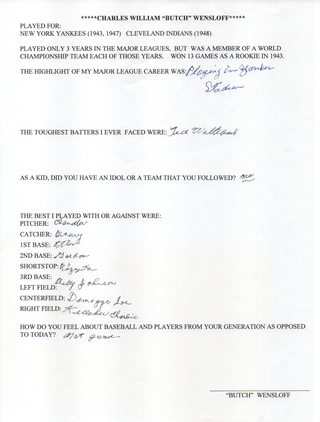 *****CHARLES WILLIAM "BUTCH" WENSLOFF*****
PLAYED FOR:
NEW YORK YANKEES (1943, 1947) CLEVELAND INDIANS (1948)
PLAYED ONLY 3 YEARS IN THE MAJOR LEAGUES, BUT WAS A MEMBER OF A WORLD
CHAMPIONSHIP TEAM EACH OF THOSE YEARS. WON 13 GAMES AS A ROOKIE IN 1943.
THE HIGHLIGHT OF MY MAJOR LEAGUE CAREER WAS: Playing in Yankee
Stadium
THE TOUGHEST BATTERS I EVER FACED WERE: Ted Williams
AS A KID, DID YOU HAVE AN IDOL OR A TEAM THAT YOU FOLLOWED? NO
THE BEST I PLAYED WITH OR AGAINST WERE:
PITCHER: Chandler
CATCHER: Dickey
1ST BASE:
2ND BASE: Gordon
SHORTSTOP: Rizzuto
3RD BASE:
LEFT FIELD: Billy Johnson
CENTERFIELD: Demaggo Joe
RIGHT FIELD: Charlie
HOW DO YOU FEEL ABOUT BASEBALL AND PLAYERS FROM YOUR GENERATION AS OPPOSED
TO TODAY? Not good
"BUTCH" WENSLOFF